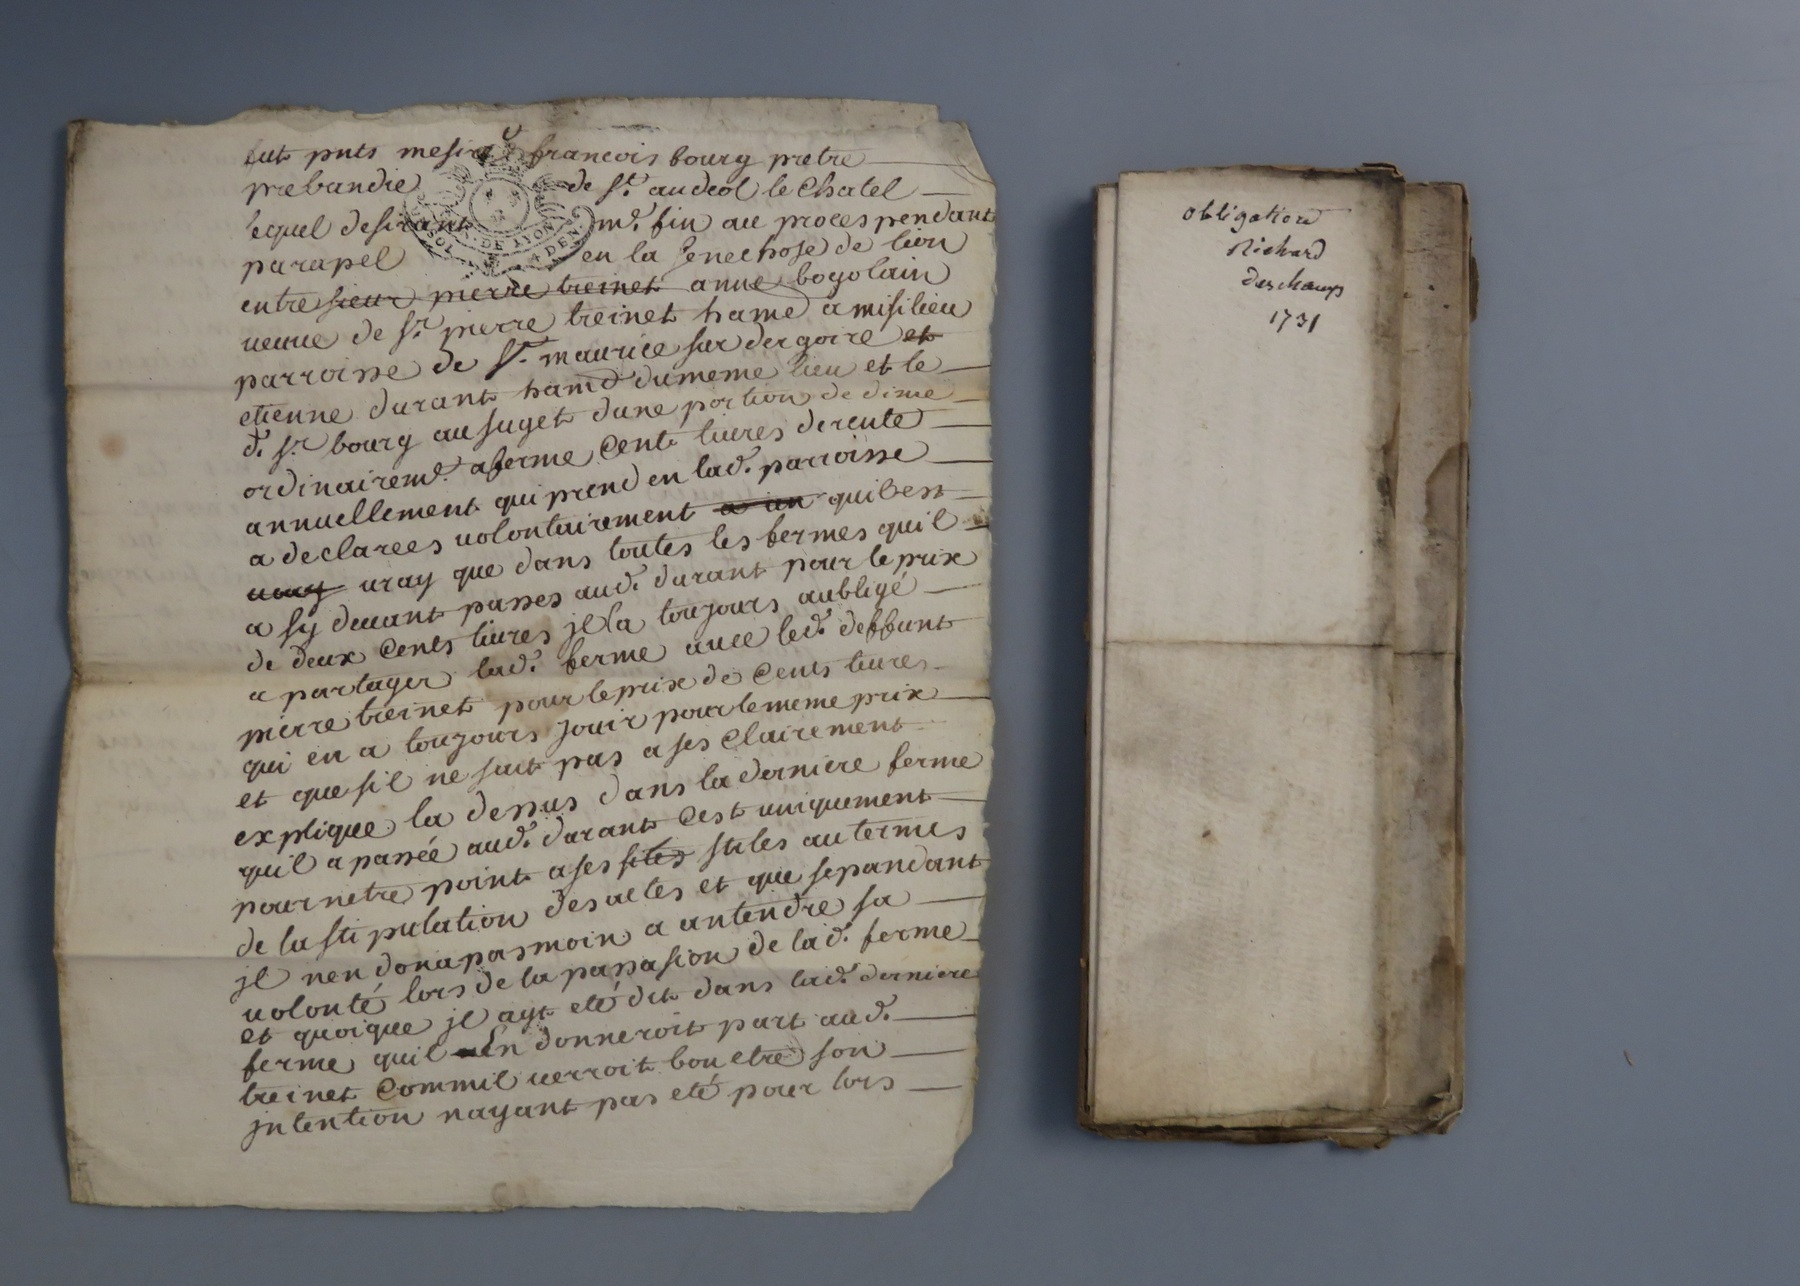 fut pnts mesire francois bourg pretre
prebandie de St. andeol le Chatel
lequel desirant m.e fin au proces pendant
par apel en la Senechose de lion
entre sieur pierre treinet anne bogolain
veuve de Sr. pierre treinet hame a misilieu
parroisse de St. maurice sur dergoire et
etienne durant ham dumeme lieu et le
d. sr. bourg au suget dune portion de dime
ordinairemt. aferme Cent livres de rente
annuellement qui prend en lad. parroisse
a declarees volontairement a un quil est
vray vray que dans toutes les fermes quil
a sy devant passes aud. durant pour le prix
de deux Cents livres jl la toujours aubligé
a partager lad. ferme avec led. deffunt
pierre treinet pour le prix de Cents livres
qui en a toujours jouir pour le meme prix
et que sil ne sait pas a ses Clairement
explique la dessus dans la derniere ferme
quil a passée aud. durant Cest uniquement
pour netre point a ses stiles stiles au termes
de la stipulation des actes et que sepandant
jl nen dona pas moin a antendre sa
volonté lors de la passasion de lad. ferme
et quoique jl ayt eté dit dans lad. derniere
ferme quil en donneroit part aud.
treinet Comm il verroit bon etre son
jntention nayant pas eté pour lors
SOL. G. DE LYON DEN.
obligation
Richard
deschamps
1731